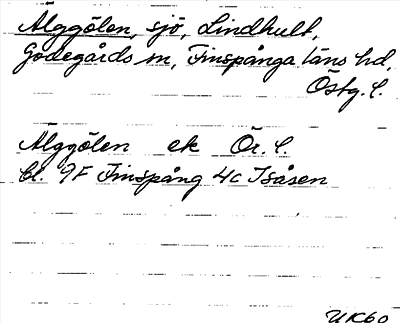 Älggölen, sjö, Lindhult,
Godegårds sn, Finspånga läns hd,
Östg. l.
Älggölen ek Ör. l.
bl. 9F Finspång 4c Isåsen
UK60